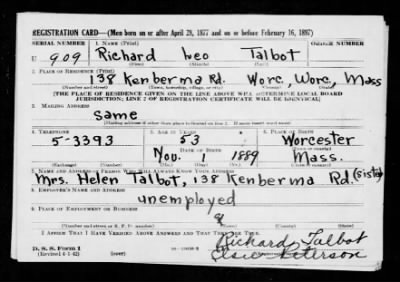 REGISTRATION CARD—(Men born on or after April 28, 1877 and on or before February 16, 1897)
SERIAL NUMBER 1. NAME (Print) ORDER NUMBER
U 909 Richard Leo Talbot
(First) (Middle) (Last)
2. PLACE OF RESIDENCE (Print)
138 Kenberma Rd. Worc, Worc, Mass
(Number and street) (Town, township, village, or city) (County) (State)
[THE PLACE OF RESIDENCE GIVEN ON THE LINE ABOVE WILL DETERMINE LOCAL BOARD
JURISDICTION; LINE 2 OF REGISTRATION CERTIFICATE WILL BE IDENTICAL]
3. MAILING ADDRESS
Same
[Mailing address if other than place indicated on line 2. If same insert word same]
4. TELEPHONE 5. AGE IN YEARS 6. PLACE OF BIRTH
5-3393 53 Worcester
DATE OF BIRTH (Town or county)
Nov. 1 1889 Mass.
(Exchange) (Number) (Mo.) (Day) (Yr.) (State or country)
7. NAME AND ADDRESS OF PERSON WHO WILL ALWAYS KNOW YOUR ADDRESS
Mrs. Helen Talbot, 138 Kenberma Rd. (sister)
8. EMPLOYER'S NAME AND ADDRESS
unemployed
9. PLACE OF EMPLOYMENT OR BUSINESS
(Number and street or R. F. D. number) (Town) (County) (State)
I AFFIRM THAT I HAVE VERIFIED ABOVE ANSWERS AND THAT THEY ARE TRUE.
Richard Talbot
D. S. S. Form 1 Elsie Peterson
(Revised 4-1-42) (over)